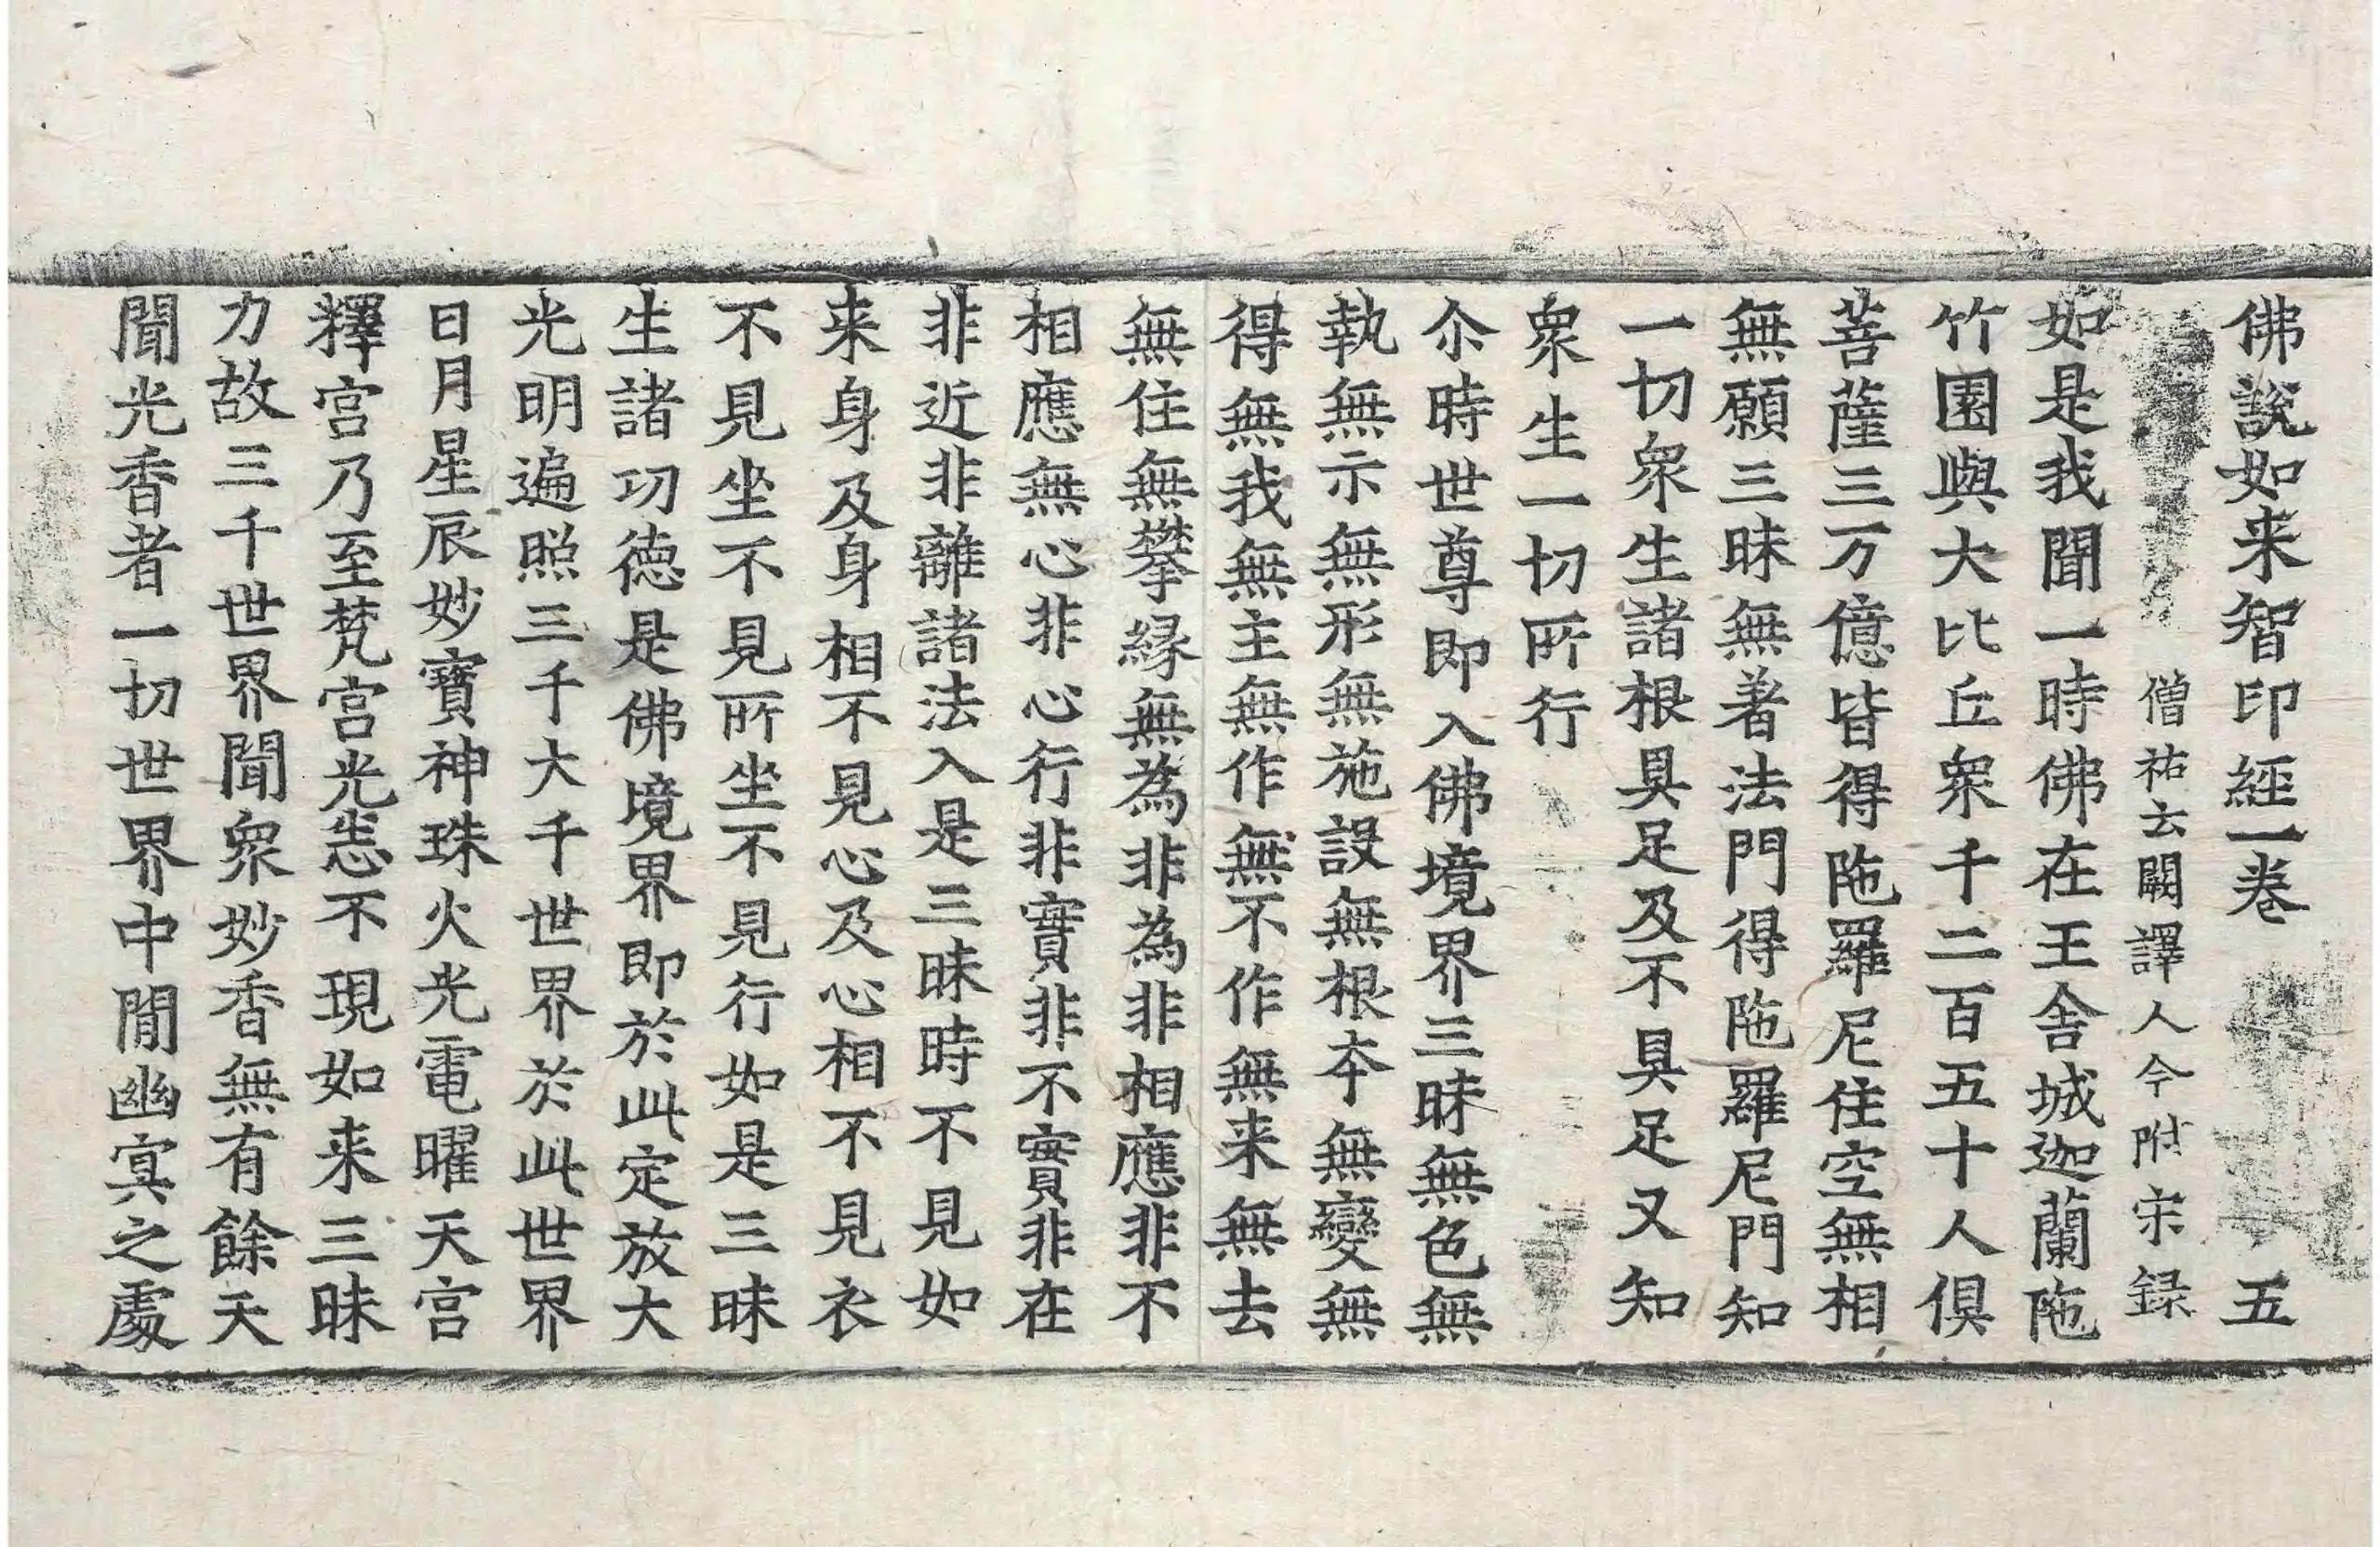 佛說如来智印經一卷　五
僧祐云闕譯人今附宋録
如是我聞一時佛在王舍城迦蘭陁
竹園與大比丘衆千二百五十人俱
菩薩三万億皆得陁羅尼住空無相
無願三昧無著法門得陁羅尼門知
一切衆生諸根具足及不具足又知
衆生一切所行
尒時世尊即入佛境界三昧無色無
執無示無形無施設無根夲無變無
得無我無主無作無不作無来無去
無住無攀緣無為非為非相應非不
相應無心非心行非實非不實非在
非近非離諸法入是三昧時不見如
来身及身相不見心及心相不見衣
不見坐不見所坐不見行如是三昧
生諸功德是佛境界即於此定放大
光明遍照三千大千世界於此世界
日月星辰妙寶神珠火光電曜天宫
釋宫乃至梵宫光悉不現如来三昧
力故三千世界聞衆妙香無有餘天
聞光香者一切世界中閒幽冥之處